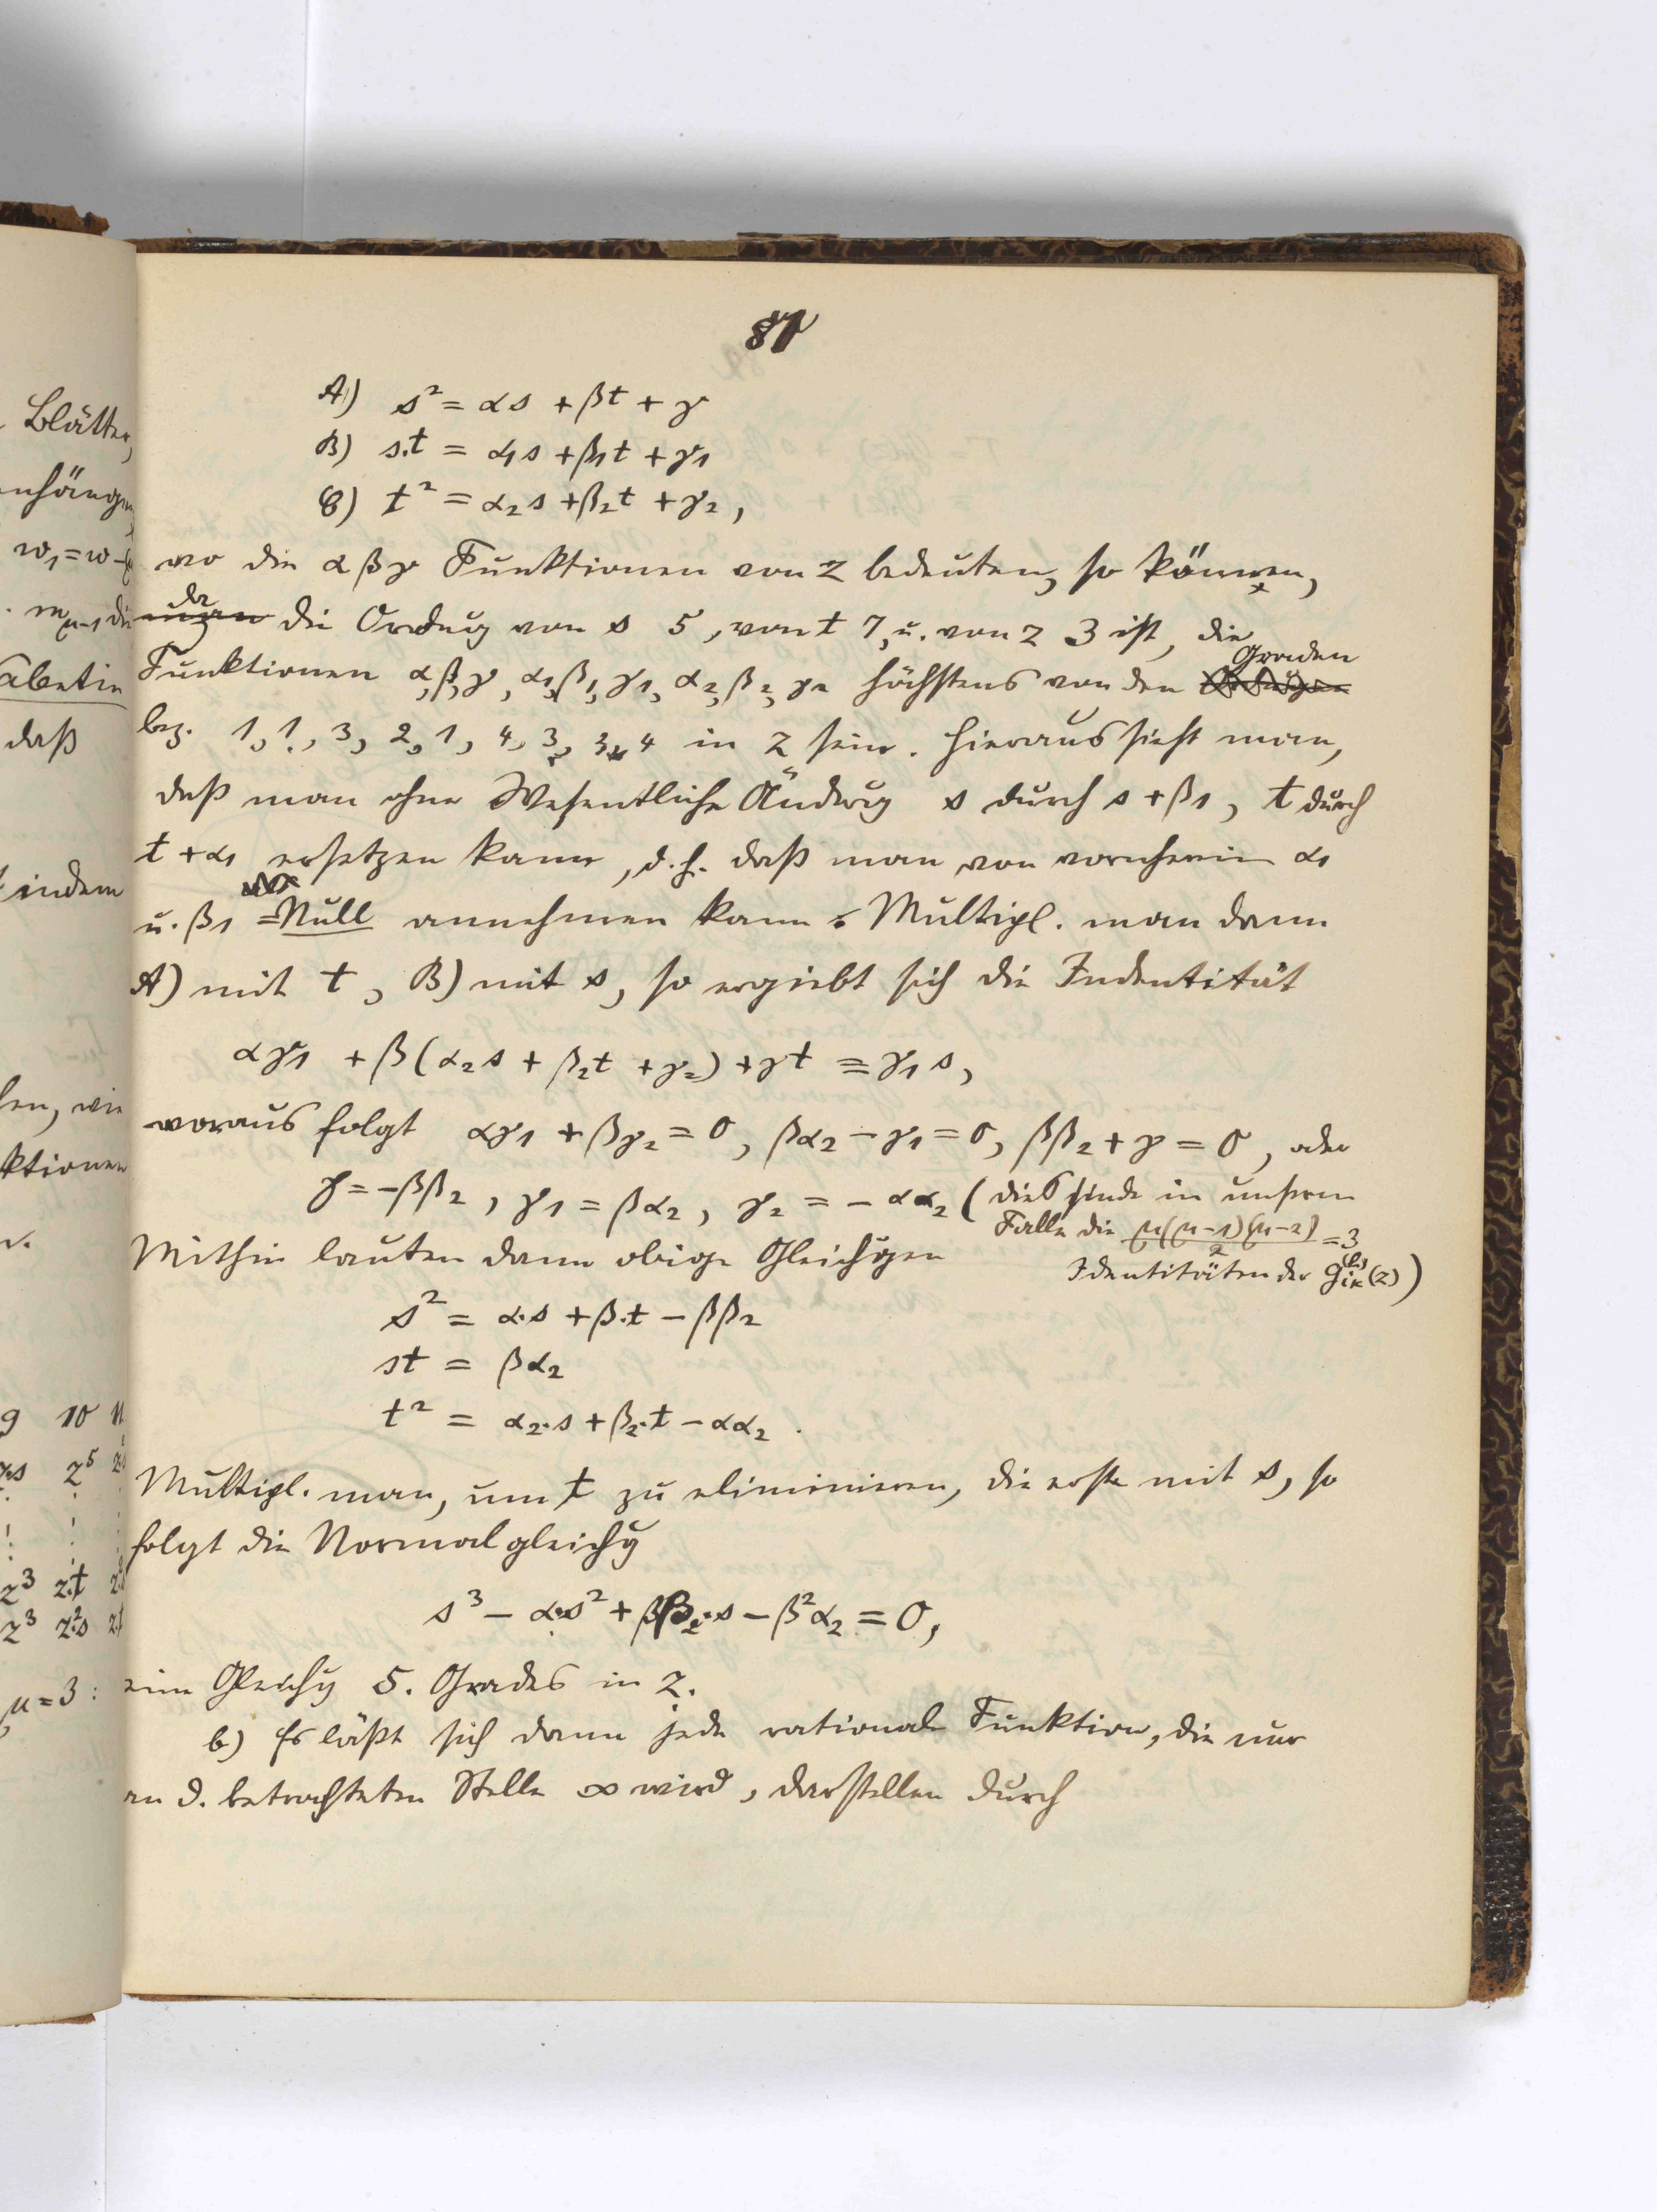 81
A) s² = αs + βt + γ
B) s.t = α₁s + β₁t + γ₁
C) t² = α₂s + β₂t + γ₂,
wo die αβγ Funktionen von z bedeuten, so können,
da die Ordnug von s 5, von t 7, u. von z 3 ist, die
Funktionen α, β, γ, α₁, β₁, γ₁, α₂, β₂, γ₂ höchstens von den Graden
bez. 1, 1, 3, 2, 1, 4, 3, 3, 4 in z sein. Hieraus sieht man,
daß man ohne Wesentliche Ändrug s durch s + β₁, t durch
t + α₁ ersetzen kann, d.h. daß man von vornherein α₁
u. β₁ = Null annehmen kann. Multipl. man dann
A) mit t, B) mit s, so ergiebt sich die Indentität
αγ₁ + β(α₂s + β₂t + γ₂) + γt ≡ γ₁s,
woraus folgt αγ₁ + βγ₂ = 0, βα₂ − γ₁ = 0, ββ₂ + γ = 0, oder
γ = −ββ₂, γ₁ = βα₂, γ₂ = −αα₂ (dies sind in unserm
Falle die μ(μ−1)(μ−2)/2 = 3
Mithin lauten dann obige Gleichugen
Identitäten der g_{ik}(z))
s² = α.s + β.t − ββ₂
st = βα₂
t² = α₂.s + β₂.t − αα₂.
Multipl. man, um t zu eliminieren, die erste mit s, so
folgt die Normalgleichg
s³ − α.s² + ββ₂.s − β²α₂ = 0,
eine Gleichg 5. Grades in z.
b) Es läßt sich dann jede rationale Funktion, die nur
an d. betrachteten Stelle ∞ wird, darstellen durch
Blätter,
w₁ = w −
daß
indem
wie
ktionen
9 10
z⁵
z³ z.t
z³ z².s
μ = 3 :